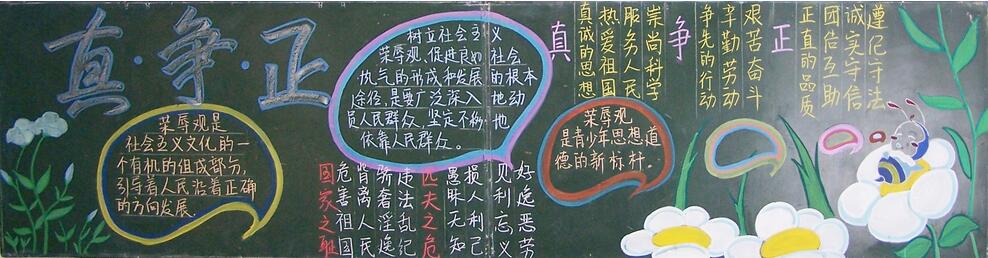 真·争·正
荣辱观是
社会主义文化的一
个有机的组成部分,
引导着人民沿着正确
的方向发展.
树立社会主义
荣辱观,促进良好社会
风气的形成和发展的根本
途径,是要广泛深入地动
员人民群众、坚定不移地
依靠人民群众。
好逸恶劳
见利忘义
损人利己
愚昧无知
匹夫之危
违法乱纪
骄奢淫逸
背离人民
危害祖国
国家之耻
荣辱观
是青少年思想道
德的新标杆.
真
崇尚科学
服务人民
热爱祖国
真诚的思想
争
艰苦奋斗
辛勤劳动
争先的行动
正
遵纪守法
诚实守信
团结互助
正直的品质